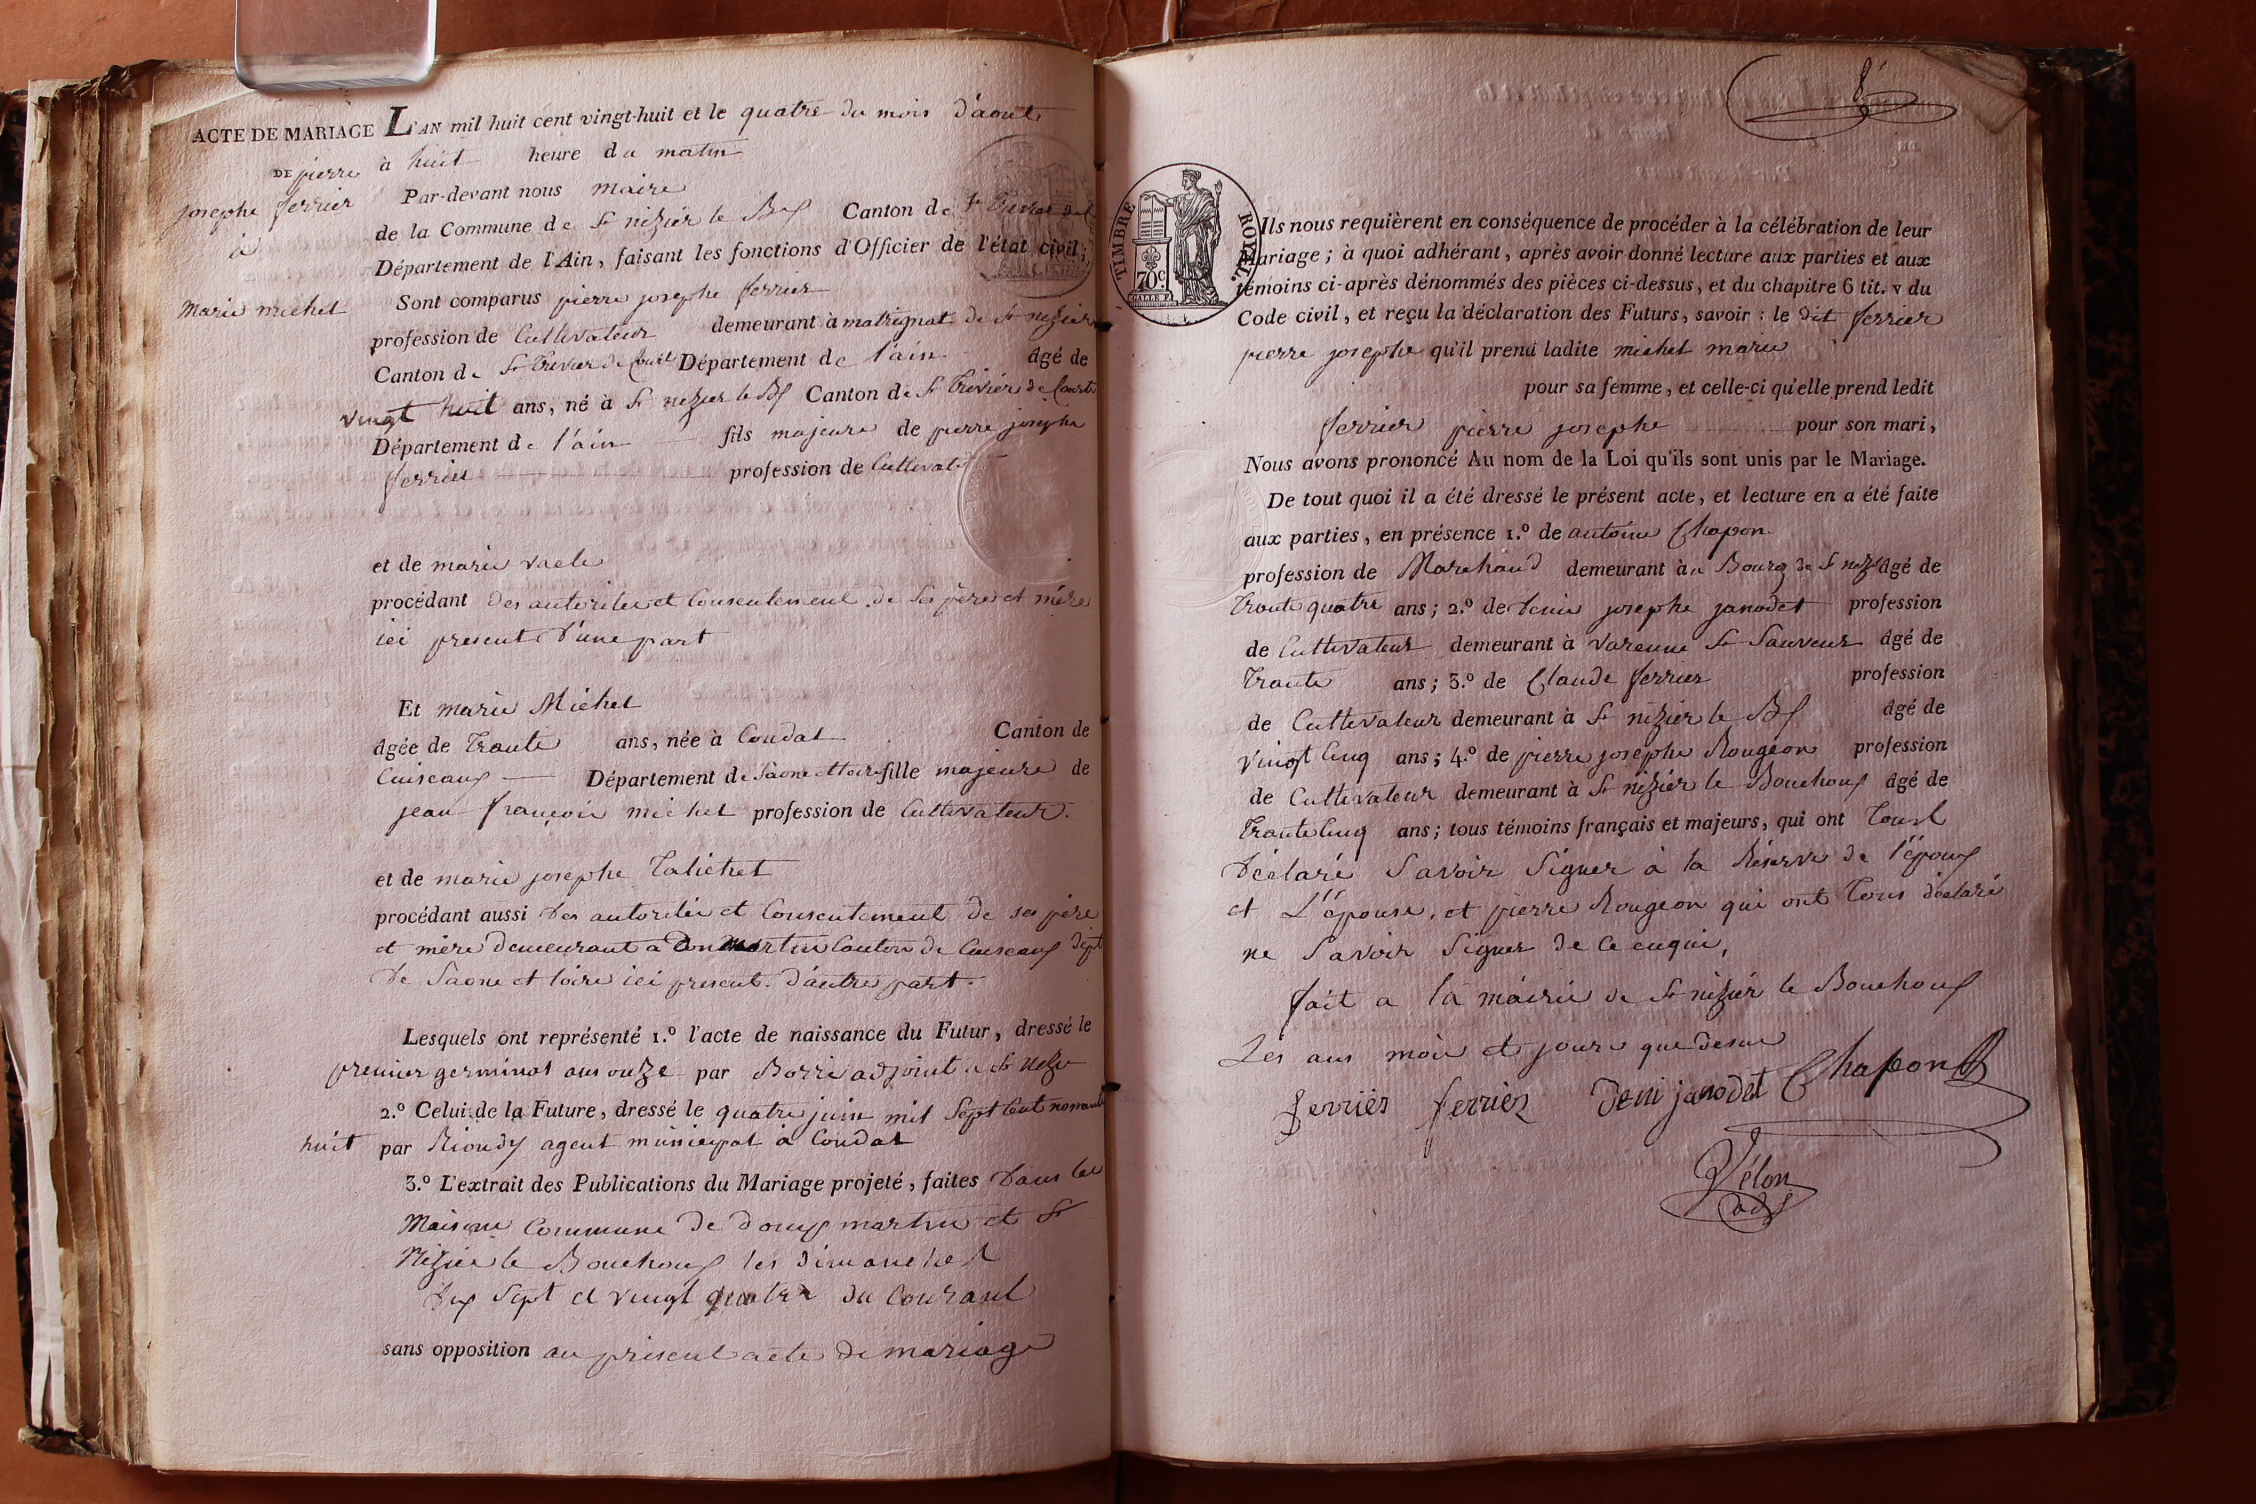 ACTE DE MARIAGE L'AN mil huit cent vingt-huit et le quatre du mois d'aout
DE pierre à huit heure du matin
josephe ferrier Par-devant nous maire
à de la Commune de St nizier le Bx Canton de St Trivier de
Département de l'Ain, faisant les fonctions d'Officier de l'état civil;
Marie michel Sont comparus pierre josephe ferrier
profession de Cultivateur demeurant à matrignat de St nizier
Canton de St Trivier de Court Département de l'ain âgé de
vingt huit ans, né à St nizier le Bx Canton de St Trivier de Courte
Département de l'ain fils majeure de pierre josephe
ferrier profession de Cultivat
et de marie vaele
procédant des autoritée et Consentement de ses père et mère
ici present d'une part
Et marie Michel
âgée de Trante ans, née à Condal Canton de
Cuiseaux Département de Saone et loire fille majeure de
jean françois michel profession de Cultivateur.
et de marie josephe Talichet
procédant aussi des autoritée et Consentement de ses père
et mère demeurant a Don Martin Canton de Cuiseaux dépt
de Saone et loire ici present. d'autre part.
Lesquels ont représenté 1.º l'acte de naissance du Futur, dressé le
premier germinal ans onze par Borri adjoint a St nizie
2.º Celui de la Future, dressé le quatre juin mil Sept Cent nonante
huit par Rioudy agent municipal à Condal
3.º L'extrait des Publications du Mariage projeté, faites dans les
Maison Commune de Domp martin et St
Nizier le Bouchoux les dimanches
dix Sept et vingt quatre du Courant
sans opposition au present acte de mariage
8
TIMBRE ROYAL.
70c.
Ils nous requièrent en conséquence de procéder à la célébration de leur
mariage; à quoi adhérant, après avoir donné lecture aux parties et aux
témoins ci-après dénommés des pièces ci-dessus, et du chapitre 6 tit. v du
Code civil, et reçu la déclaration des Futurs, savoir : le dit ferrier
pierre josephe qu'il prend ladite michel marie
pour sa femme, et celle-ci qu'elle prend ledit
ferrier pierre josephe pour son mari,
Nous avons prononcé Au nom de la Loi qu'ils sont unis par le Mariage.
De tout quoi il a été dressé le présent acte, et lecture en a été faite
aux parties, en présence 1.º de antoine Chapon
profession de Marchand demeurant à u Bourg de St niz âgé de
Trante quatre ans; 2.º de Denis josephe janodet profession
de Cultivateur demeurant à Varenne St Sauveur âgé de
Trante ans; 3.º de Claude ferrier profession
de Cultivateur demeurant à St nizier le Bx âgé de
vingt Cinq ans; 4.º de pierre josephe Rougeon profession
de Cultivateur demeurant à St nizier le Bouchoux âgé de
Trante Cinq ans; tous témoins français et majeurs, qui ont Tous
déclaré Savoir Signer à la Réserve de l'époux
et L'épouse, et pierre Rougeon qui ont Tous déclaré
ne Savoir Signer de Ce enquis,
fait a la mairie de St nizier le Bouchoux
Les ans mois et jours que desus
ferrier ferrier Deni janodet Chapon
Vélon
adj